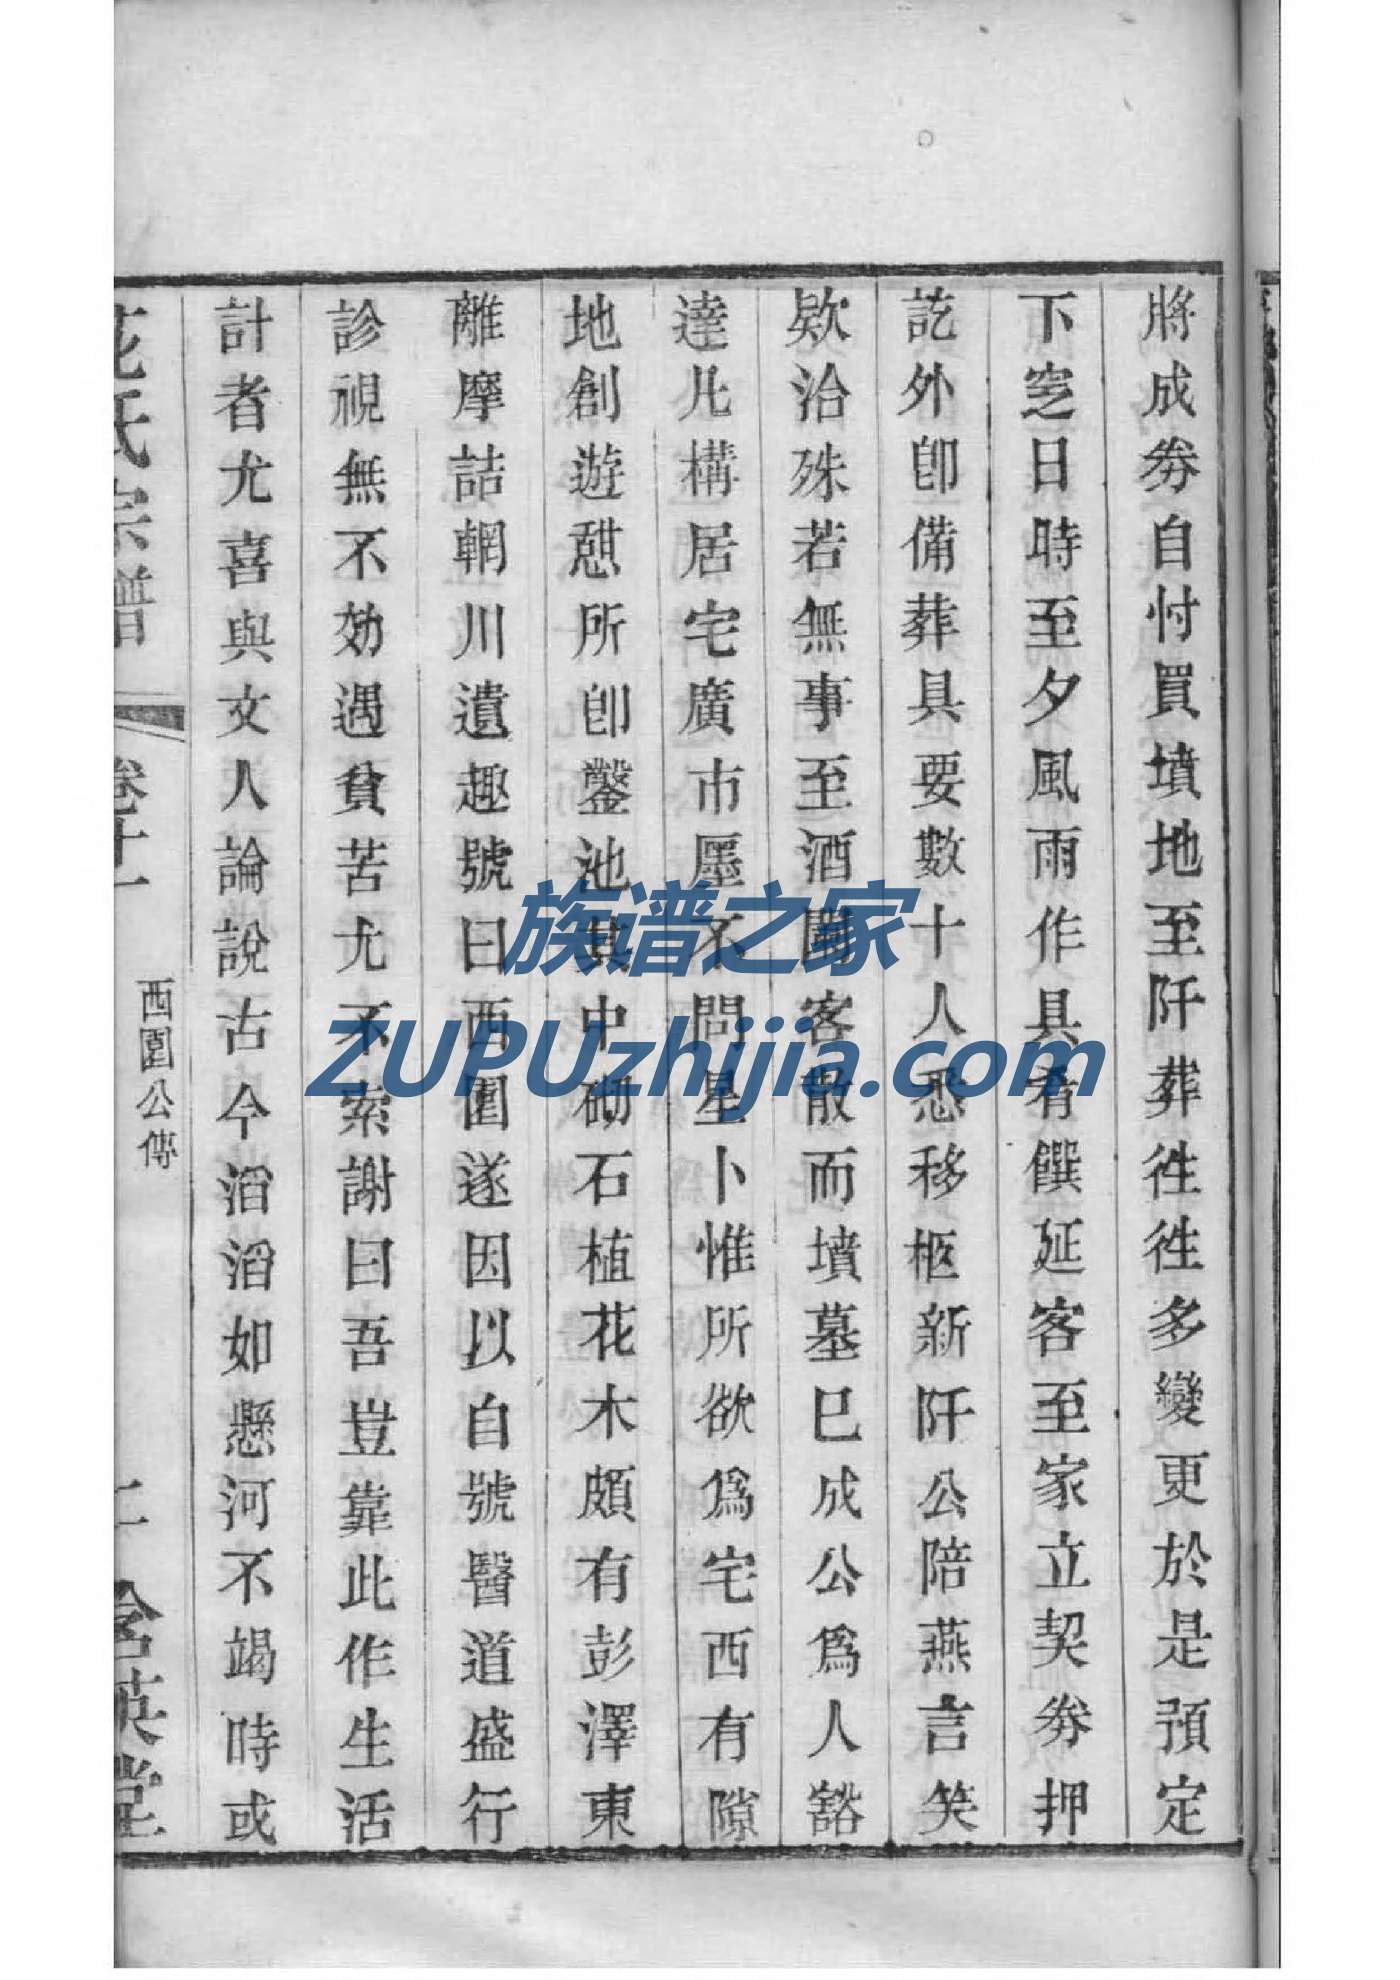 將成券自忖買墳地至阡葬徃徃多變更於是預定
下窆日時至夕風雨作具肴饌延客至家立契券押
訖外卽備葬具要數十人悉移柩新阡公陪燕言笑
欵洽殊若無事至酒闌客散而墳墓巳成公爲人豁
達凡構居宅廣市廛不問星卜惟所欲爲宅西有隙
地創遊憇所卽鑿池其中砌石植花木頗有彭澤東
離摩詰輞川遺趣號曰西園遂因以自號醫道盛行
診視無不効遇貧苦尤不索謝曰吾豈靠此作生活
計者尤喜與文人論說古今滔滔如懸河不竭時或
花氏宗譜
卷十一
西園公傳
二
含英堂
族谱之家
ZUPUzhijia.com